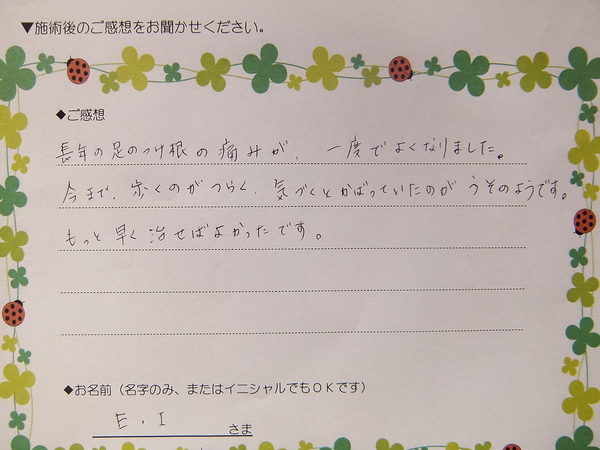 ▼施術後のご感想をお聞かせください。
◆ご感想
長年の足のつけ根の痛みが、一度でよくなりました。
今まで、歩くのがつらく、気づくとかばっていたのがうそのようです。
もっと早く治せばよかったです。
◆お名前（名字のみ、またはイニシャルでもＯＫです）
E・I さま